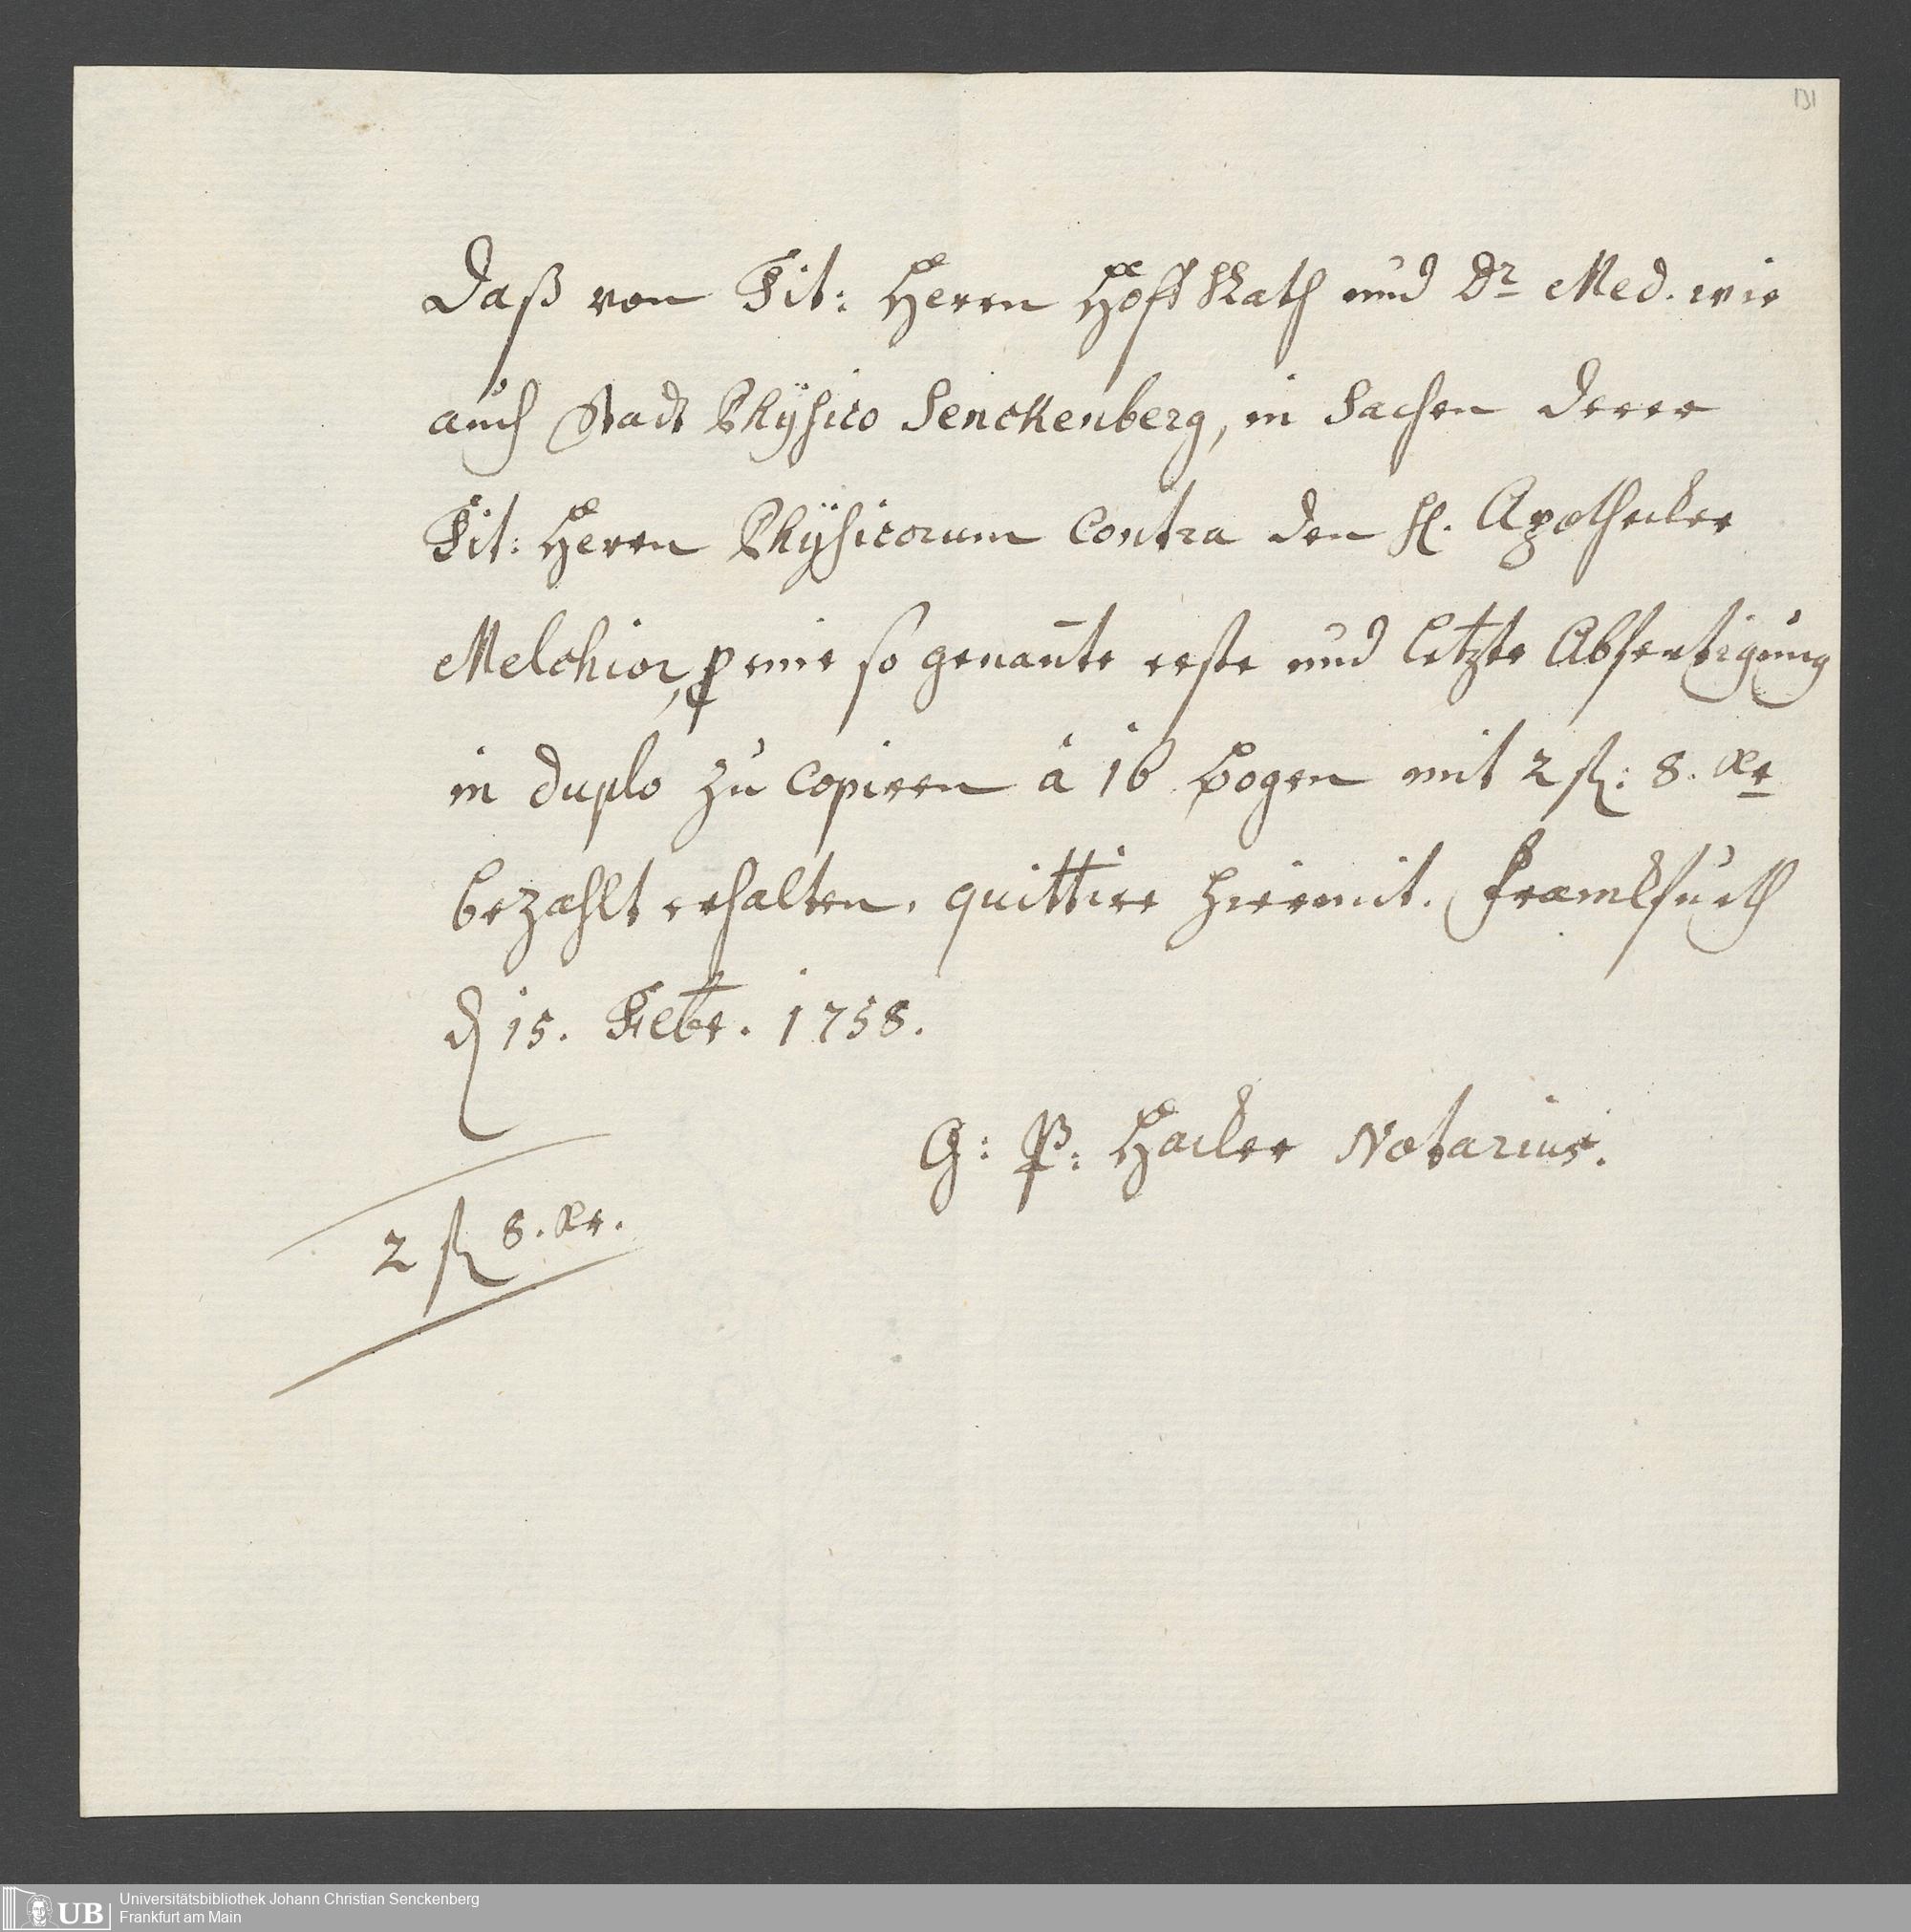 131
Daß von Tit: Herrn Hoff Rath und Dr Med. wie
auch Stadt Physico Senckenberg, in Sachen derer
Tit: Herrn Physicorum Contra den H. Apothecker
Melchior, p eine so genan̄te erste und letzte Abfertigung
in duplo zu copiren â 16 Bogen mit 2 fl: 8. Xr
bezahlt erhalten, quittire hiermit. Franckfurth
d 15. Febr. 1758.
G: P: Hacker Notarius.
2 fl 8. Xr.
UB
Universitätsbibliothek Johann Christian Senckenberg
Frankfurt am Main